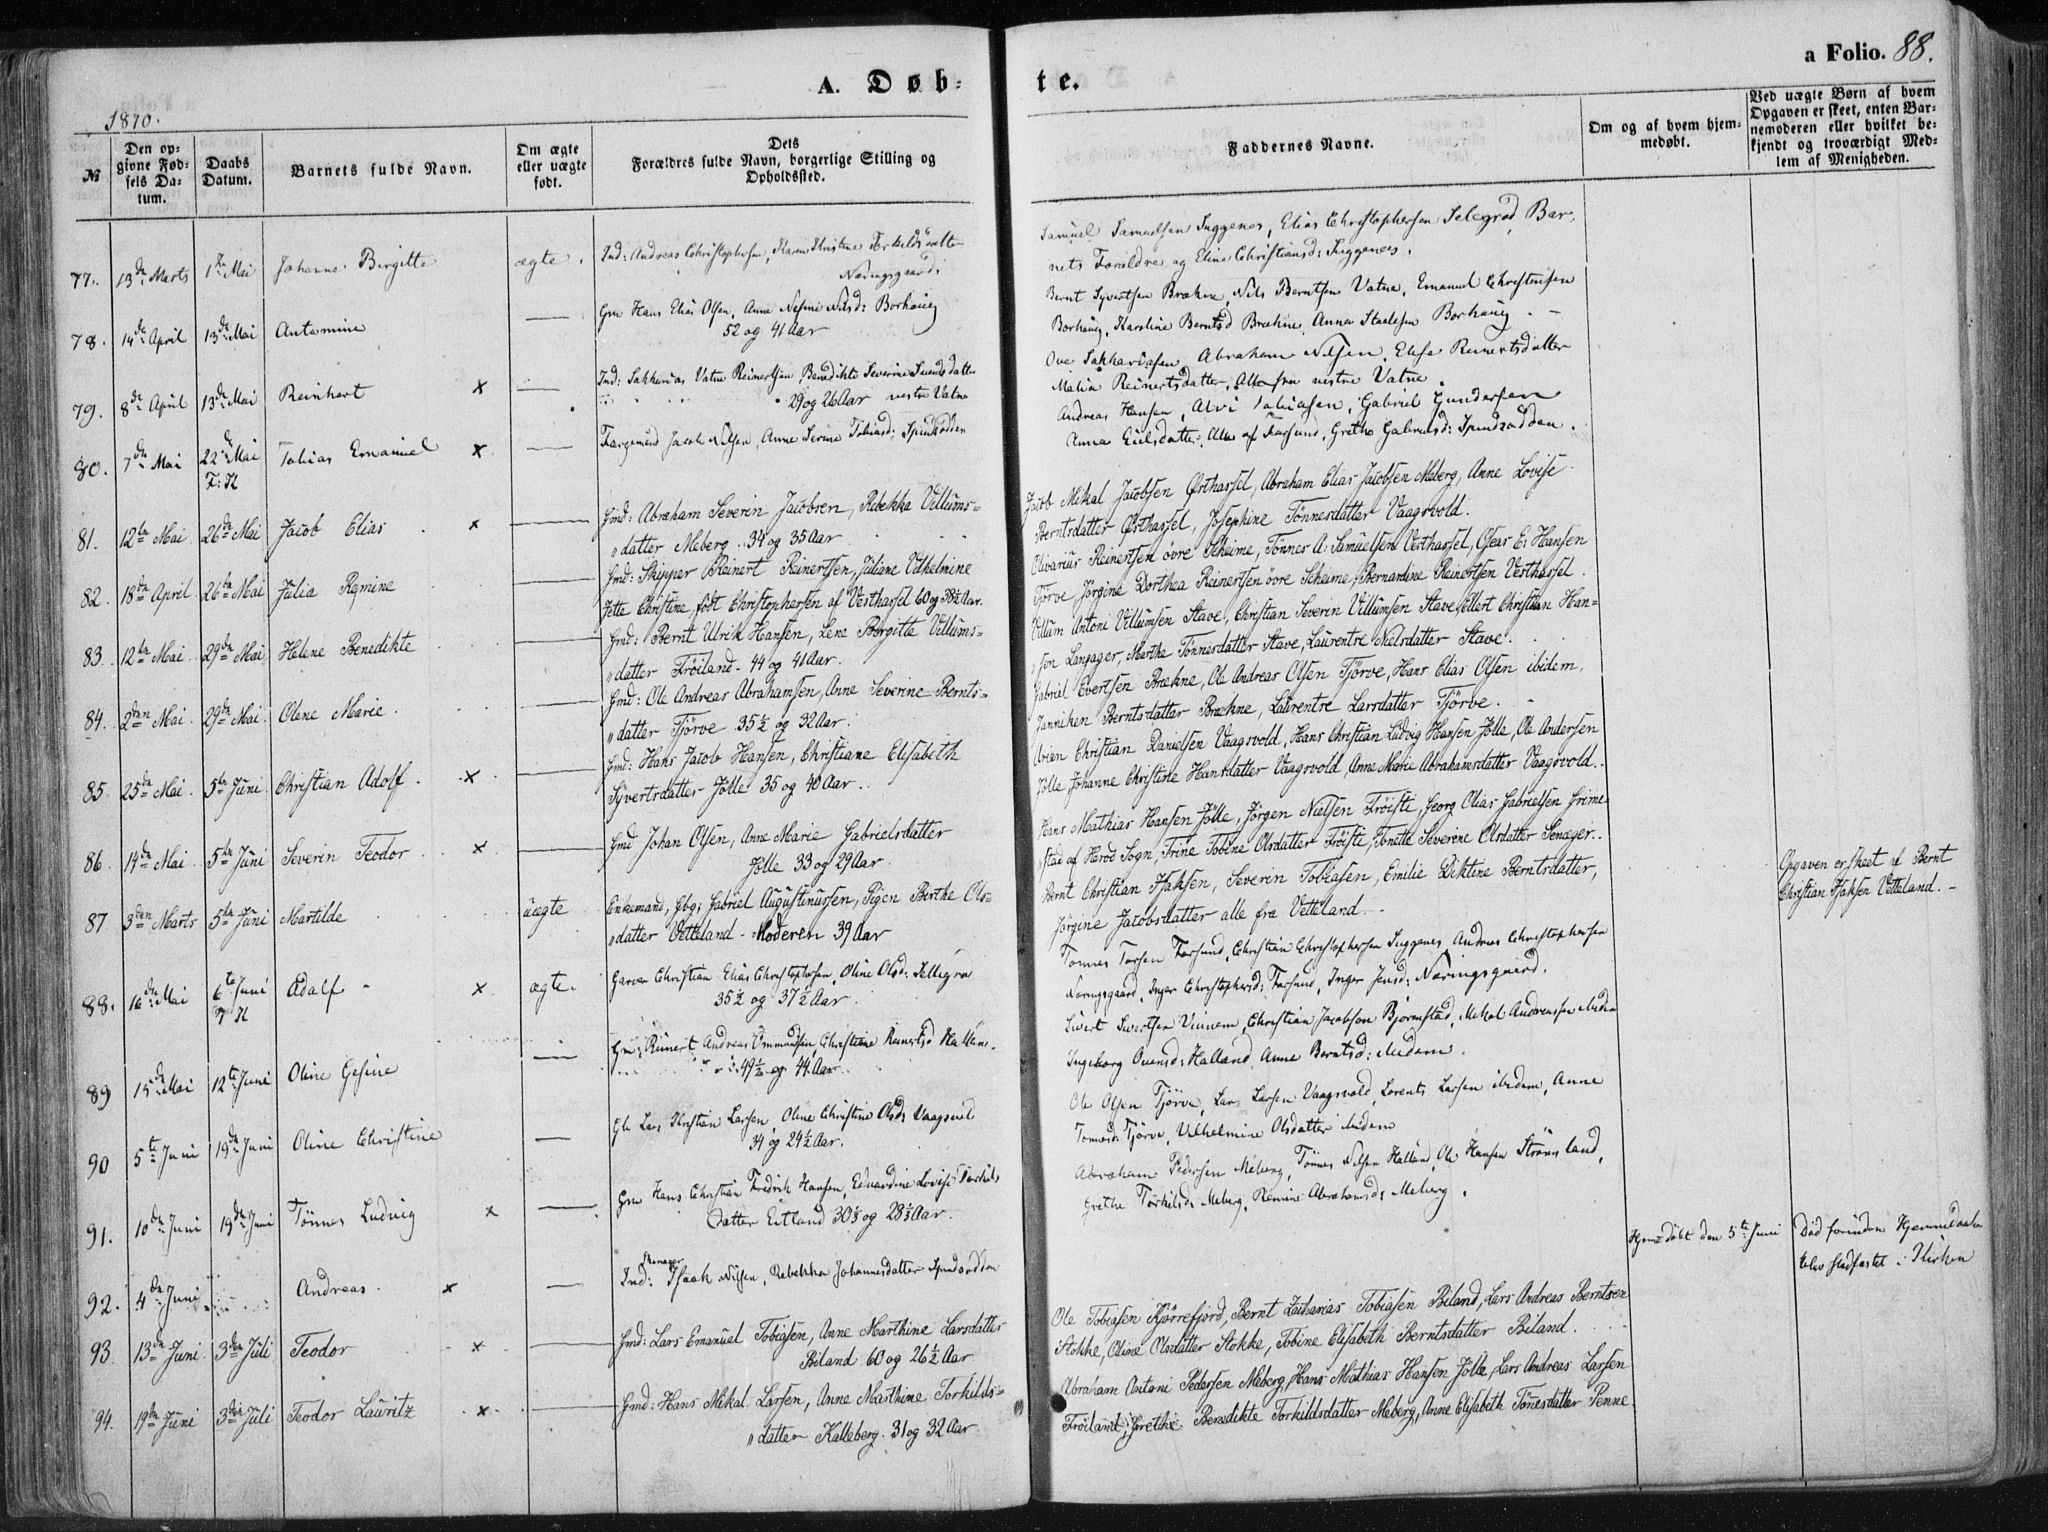 A. Døb-
te.
a Folio. 88.
1870.
№
Den op-
givne Fød-
sels Da-
tum.
Daabs
Datum.
Barnets fulde Navn.
Om ægte
eller uægte
født.
Dets
Forældres fulde Navn, borgerlige Stilling og
Opholdssted.
Faddernes Navne.
Om og af hvem hjem-
medøbt.
Ved uægte Børn af hvem
Opgaven er skeet, enten Bar-
nemoderen eller hvilket be-
kjendt og troværdigt Med-
lem af Menigheden.
77. 13de Marts 1ste Mai Johanne Birgitte ægte. Ind: Andreas Christophersen, Karen Kristine
Næringsgaard:
Samuel Samuelsen Suggenes, Elias Christophersen Bar-
nets Forældre og Eline Christiansd: Suggenes.
78. 14de April 13de Mai Antamine — Gm Hans Elias Olsen, Anne Nilsd: Borhaug
52 og 41 Aar
Bernt Syvertsen Brækne, Nils Berntsen Vatne, Emanuel Christensen
Borhaug, Karoline Berntsd Brækne, Anna Borhaug. —
79. 8de April 13de Mai Reinhart x — Ind: Sakkarias Vatne Reinertsen, Benedikte Severine
29 og 26 Aar vestre Vatne
Ove Sakkariasen, Abraham Nilsen, Elise Reinertsdatter
Malin Reinertsdatter, Alle fra vestre Vatne.
80. 7de Mai 22de Mai Tobias Emanuel x — Jacob Nilsen, Anne Serine Tobiasd: Spindsodden
F: K
Andreas Hansen, Tobiasen, Gabriel Gundersen
Anna datter, Alle af Farsund, Grethe Gabrielsd: Spindsodden.
81. 12te Mai 26de Mai Jacob Elias x — Gmd: Abraham Severin Jacobsen, Rebekka Villums-
"datter Meberg. 34 og 35 Aar
Jacob Mikal Jacobsen Østhassel, Abraham Elias Jacobsen Meberg, Anne Lovise
Berntsdatter Østhassel, Josephine Tönnesdatter Vaagsvold.
82. 18de April 26de Mai Julia Remine — Gmd: Skipper Reinert Reinertsen, Juliane Vilhelmine
Jette Christine født Christophersen af Vesthassel 60 og 38½ Aar.
Olivarius Reinertsen övre Skeime, Tönnes A: Samuelsen Vesthassel, Osear E: Hansen
Tjörve, Jörgine Dorthea Reinertsen övre Skeime, Bernardine Reinertsen Vesthassel.
83. 12te Mai 29de Mai Helene Benedikte — Gmd: Bernt Ulrik Hansen, Lene Birgitte Villums-
"datter Fröiland. 44 og 41 Aar.
Villum Antoni Villumsen Stave, Christian Severin Villumsen Stave, Ellert Christian Han-
"sen Langager, Marthe Tönnesdatter Stave, Laurentse Nielsdatter Stave.
84. 2den Mai 29de Mai Olene Marie. — Gmd: Ole Andreas Abrahamsen, Anne Severine Bernts-
"datter Tjörve 35½ og 32 Aar.
Gabriel Evertsen Brækne, Ole Andreas Olsen Tjörve, Hans Elias Olsen ibidem,
Janniken Berntsdatter Brækne, Laurentse Larsdatter Tjörve.
85. 25de Mai 5te Juni Christian Adolf. x — Gmd: Hans Jacob Hansen, Christiane Elisabeth
Syvertsdatter Jölle 35 og 40 Aar.
Arien Christian Danielsen Vaagsvold, Hans Christian Ludvig Hansen Jölle, Ole Andersen
Jölle Johanne Christine Hansdatter Vaagsvold, Anne Marie Abrahamsdatter Vaagsvold.
86. 14de Mai 5te Juni Severin Teodor x — Gmd Johan Olsen, Anne Marie Gabrielsdatter
Jölle 33 og 29 Aar.
Hans Mathias Hansen Jölle, Jörgen Nielsen Fröisti, Georg Olias Gabrielsen Grime-
"stad af Herod Sogn, Trine Tobine Olsdatter Fröiste, Tonette Severine Olsdatter Penager.
87 3den Marts 5te Juni Martilde uægte Enkemand, Gbg: Gabriel Augustinursen, Pigen Berthe Ols-
"datter Vetteland — Moderen 39 Aar
Bernt Christian Isaksen, Severin Tobiasen, Emilie Diktine Berntsdatter,
Jörgine Jacobsdatter alle fra Vetteland. —
Opgaven er skeet af Bernt
Christian Isaksen Vetteland. —
88. 16de Mai 6te Juni Adolf — x ægte. Garver Christian Elias Christophersen, Oline Olsd: Sellegrod
35½ og 37½ Aar.
Tönnes Farsund, Christian Christophersen Suggenes, Andreas Christophersen
Næringsgaard, Inger Christophersd: Farsund, Inger Jensd: Næringsgaard.
89 15de Mai 12te Juni Oline Gesine — Gm: Reinert Andreas Ommundsen, Christiane Reinertsd
49½ og 44 Aar.
Sivert Sivertsen Vinnem, Christian Jacobsen Bjørnestad, Mikal Andreassen
Ingeborg Ovensd: Halland, Anne Berntsd: ibidem.
90 5te Juni 19de Juni Oline Christine — Lars Christian Larsen, Oline Christine Olsd: Vaagsvold
34 og 24½ Aar.
Ole Olsen Tjörve, Lars Larsen Vaagsvold, Lorents Larsen ibidem, Anne
Tjörve, Vilhelmine Olsdatter ibidem
91. 10de Juni 19de Juni Tönnes Ludvig x — Gm Hans Christian Fredrik Hansen, Eduardine Lovise Torkils
Datter Eitland 30⅓ og 28⅓ Aar.
Abraham Pedersen Meberg, Tönnes Nilsen Halland, Ole Hansen Strömsland,
Grethe Torkilsd: Meberg, Remine Abrahamsd: Meberg.
92. 4de Juni Andreas. x — Ind: Isaak Nilsen, Rebekka Johannesdatter Spindsodden
Hjemdöbt den 5te Juni
Död forinden Hjemmedaaben
blev stadfæstet i Kirken
93 13de Juni 3die Juli Teodor x — Gmd: Lars Emanuel Tobiasen, Anne Marthine Larsdatter
Biland 60 og 26½ Aar
Ole Tobiasen Kjörrefjord, Bernt Zacharias Tobiasen Biland, Lars Andreas Berntsen
Stokke, Oline Olsdatter Stokke, Tobine Elisabeth Berntsdatter Biland.
94. 19de Juni 3die Juli Teodor Lauritz x — Gmd: Hans Mikal Larsen, Anne Marthine Torkilds-
"datter Kalleberg. 31 og 32 Aar
Abraham Antoni Pedersen Meberg, Hans Mathias Hansen Jölle, Lars Andreas Larsen
Fröiland, Grethe Benedikte Torkildsdatter Meberg, Anne Elisabeth Tönesdatter Penne